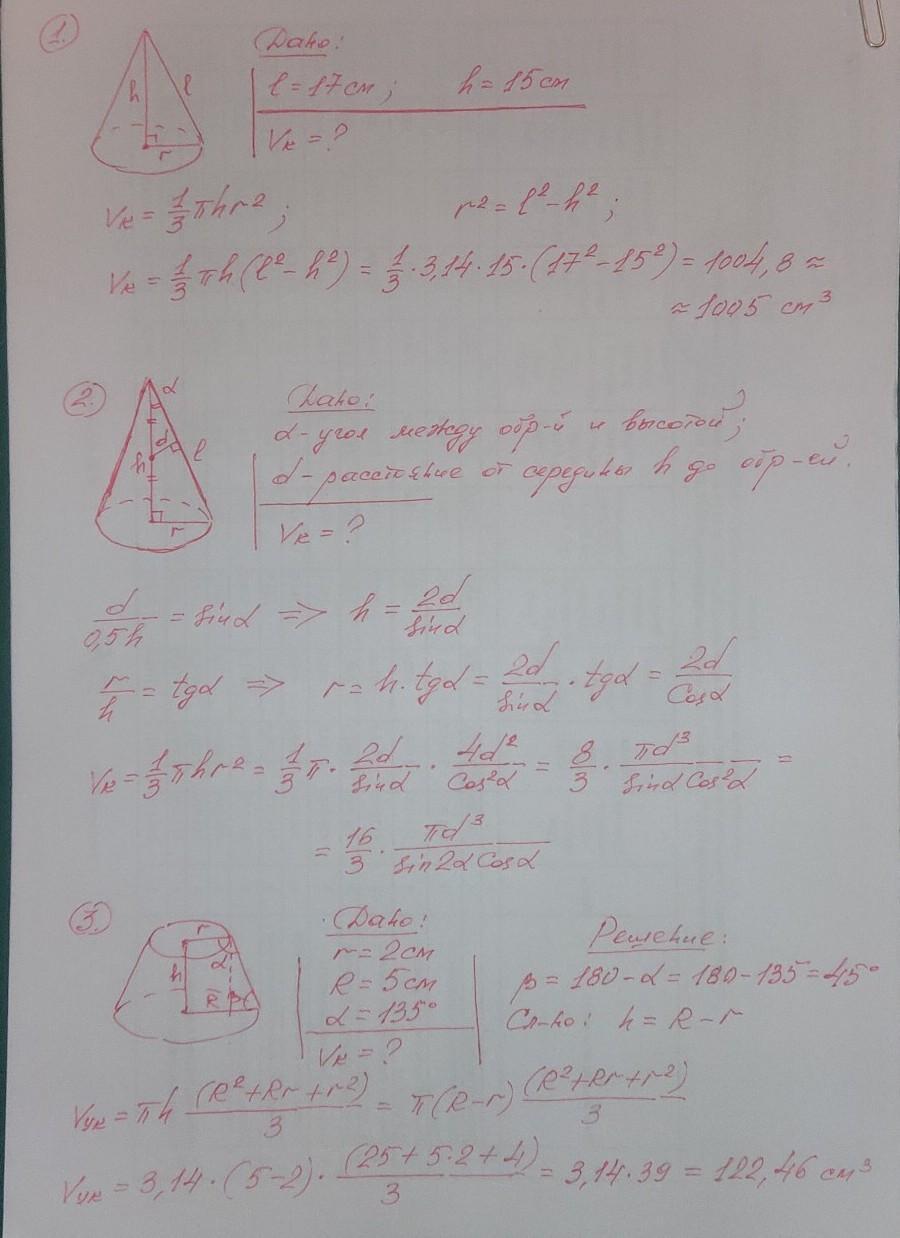 1.
h l r
Дано:
l = 17 см; h = 15 см
Vк = ?
Vк = 1/3 πhr²; r² = l² − h²;
Vк = 1/3 πh(l² − h²) = 1/3 · 3,14 · 15 · (17² − 15²) = 1004,8 ≈
≈ 1005 см³
2.
α d h l r
Дано:
α - угол между обр-й и высотой;
d - расстояние от середины h до обр-ей.
Vк = ?
d/0,5h = sinα => h = 2d/sinα
r/h = tgα => r = h · tgα = 2d/sinα · tgα = 2d/cosα
Vк = 1/3 πhr² = 1/3 π · 2d/sinα · 4d²/cos²α = 8/3 · πd³/sinα cos²α =
= 16/3 · πd³/sin2α cosα
3.
r α h R β
Дано:
r = 2 см
R = 5 см
α = 135°
Vк = ?
Решение:
β = 180 − α = 180 − 135 = 45°
Сл-но: h = R − r
Vук = πh (R² + Rr + r²)/3 = π(R − r) (R² + Rr + r²)/3
Vук = 3,14 · (5 − 2) · (25 + 5·2 + 4)/3 = 3,14 · 39 = 122,46 см³